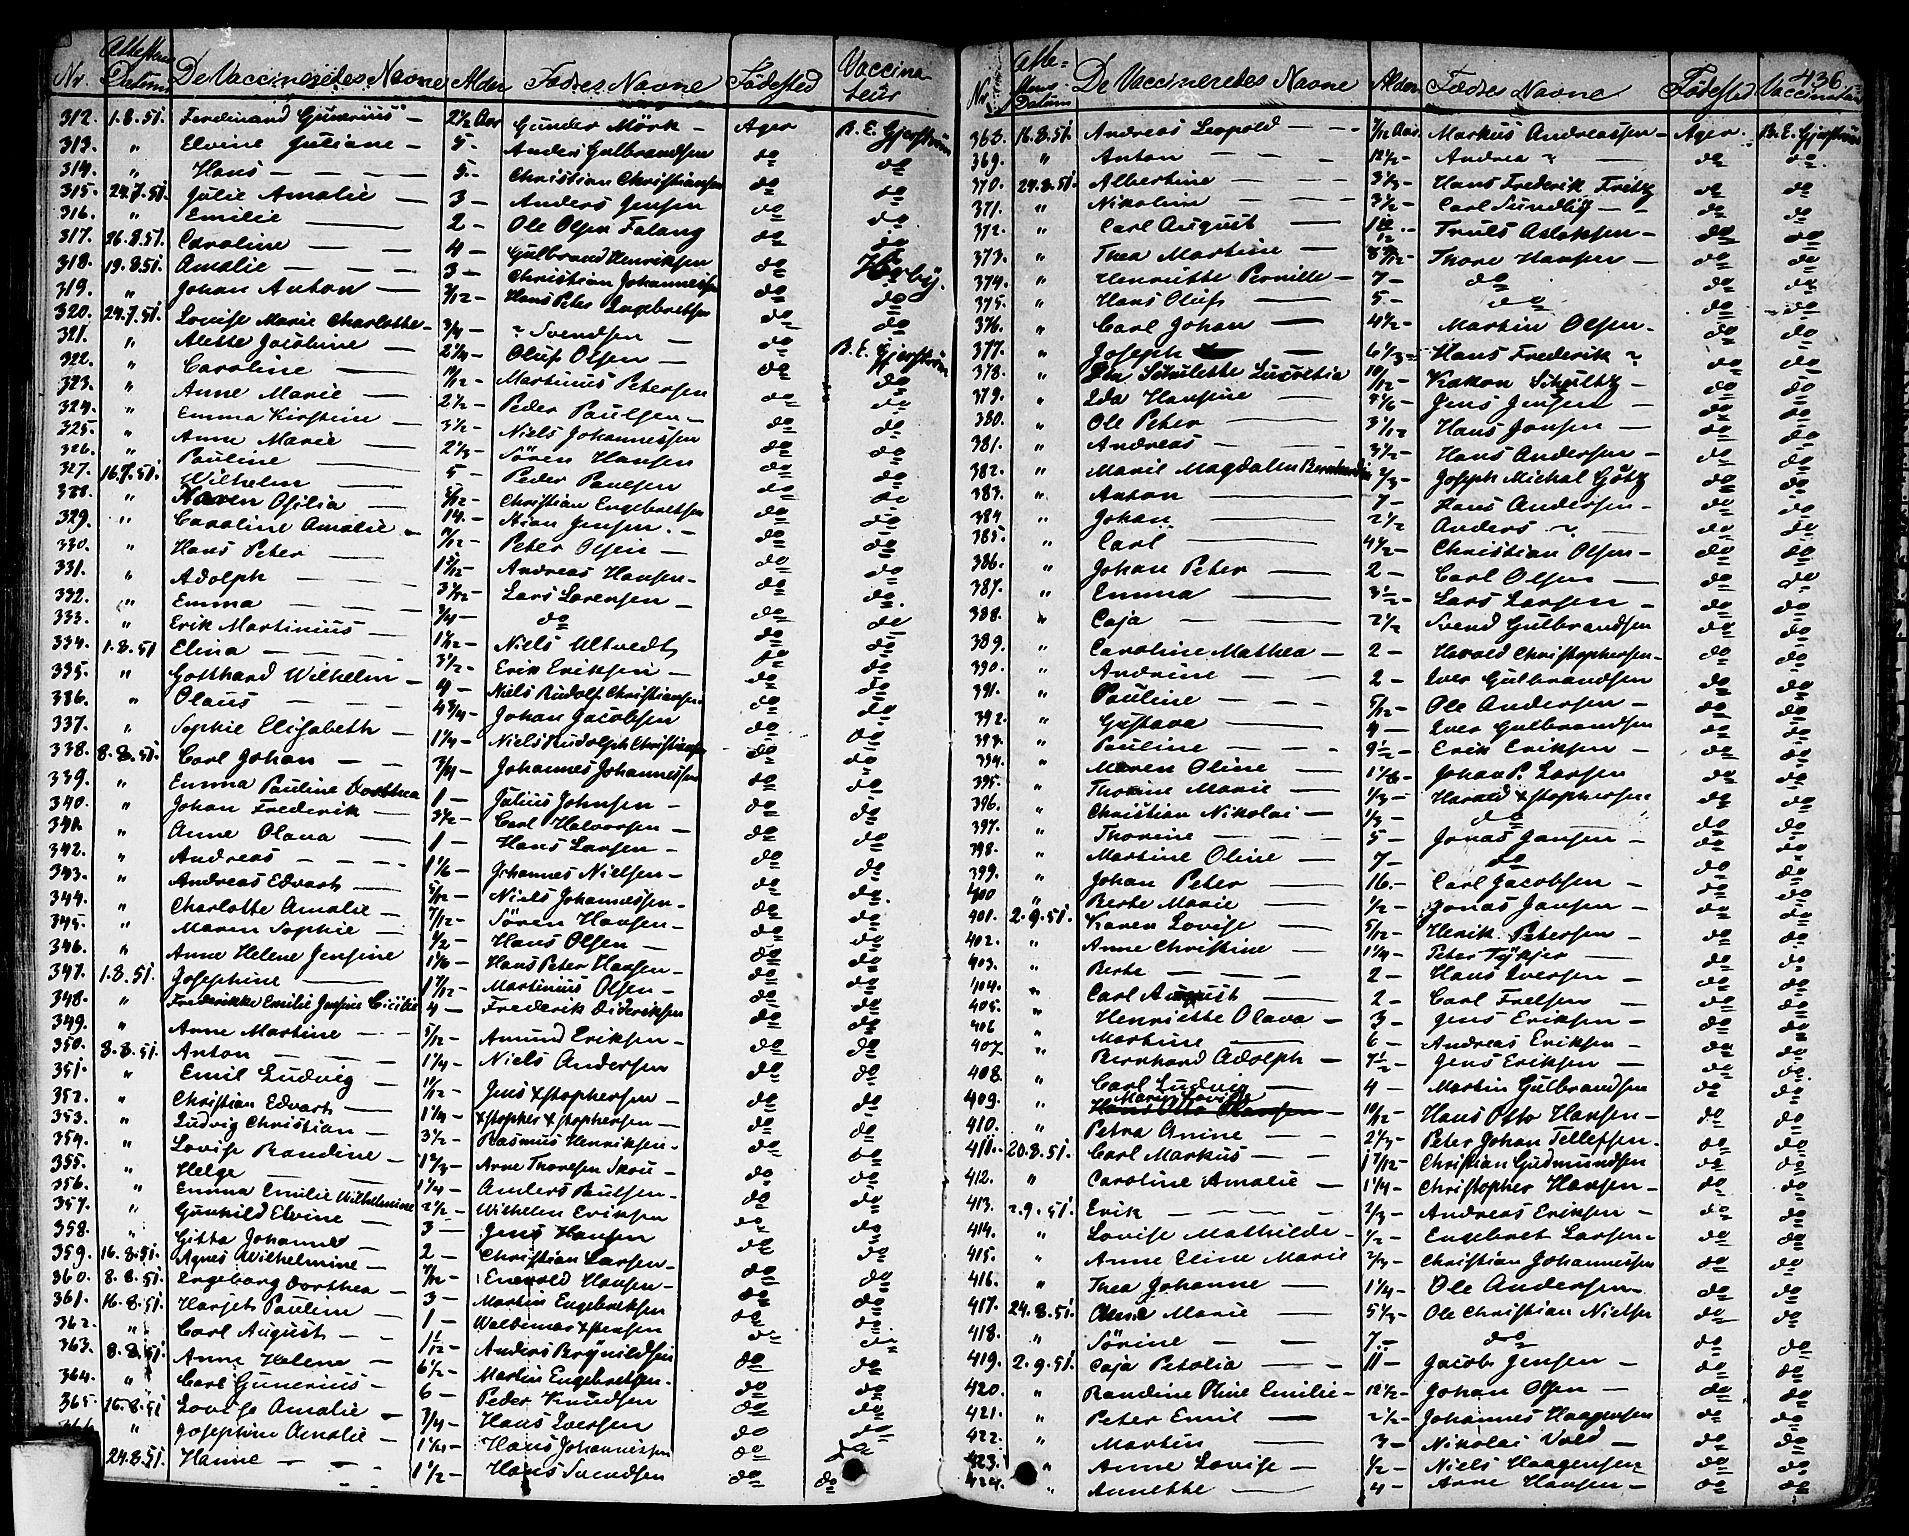 Nr. Attestens Datum De Vaccineredes Navne Alder Fædres Navne Fødested Vaccinateur
312. 1.8.51. Ferdinand Gunerius — 2½ Aar Gunder Mörk — Ager B. E. Gjerstrøm
313. " Elvine Juliane — 5 — Anders Gulbrandsen do do
314. " Hans — 5 — Christian Christiansen do do
315. 24.7.51. Julie Amalie — 3 — Anders Jensen do do
316. " Emilie — 2 — Ole Olsen Falang do do
317. 26.8.51. Caroline — 4 — Gulbrand Henriksen do do
318. 19.8.51. Amalie — 3 — Christian Johannessen do Hørbÿ.
319. " Johan Anton — Hans Peter Ingebretsen do do
320. 24.7.51. Lovise Marie Charlotte — 3/4 — " Svendsen — do do
321. " Alette Jacobine — 2 1/4 — Oluf Olsen — do B. E. Gjerstrøm
322. " Caroline — Martinus Petersen do do
323. " Anne Marie — 2½ — Peder Paulsen — do do
324. " Emma Kirstine — 3½ — Niels Johannessen do do
325. " Anne Marie — 2 1/3 — Sören Hansen do do
326. " Pauline — 5 — Peder Paulsen do do
327. 16.7.51. Wilhelm — Christian Engebretsen do do
328. " Maren Osilia — 14 — Jensen — do do
329. " Caroline Amalie — Peter Olsen — do do
330. " Hans Peter — Andreas Hansen — do do
331. " Adolph — Lars Larensen — do do
332. " Emma — 3/4 — do do do
333. " Erik Martinius — Niels Altvedt do do
334. 1.8.51 Elina — 3½ — Erik Eriksen — do do
335. " Gotthard Wilhelm — 4 — Niels Rudolf Christiansen do do
336. " Olaus — 4 3/4 — Johan Jacobsen do do
337. " Sophie Elisabeth — 1 1/4 — Niels Rudolph Christiansen do do
338. 8.8.51. Carl Johan — 3/4 — Johannes Johannessen do do
339. " Emma Pauline Dorthea 1 — Julius Johnsen — do do
340. " Johan Frederik — 3½ — Carl Halvorsen — do do
341. " Anne Olava — 1 — Hans Larsen — do do
342. " Andreas — 1 1/6 — Johannes Nielsen — do do
343. " Andreas Edvart — 5/12 — Niels Johannessen — do do
344. " Charlotte Amalie — 7/12 — Sören Hansen — do do
345. " Maren Sophie — ½ — Hans Olsen — do do
346. " Anne Helene Jensine 1 1/6 — Hans Peter Hansen — do do
347. 1.8.51. Josephine — Martinius Olsen — do do
348. " Frederikke Emilie Jensine Cicilie 4 — Frederik Dideriksen do do
349. " Anne Martine — 5/12 — Amund Eriksen — do do
350. 8.8.51. Anton — 1 1/4 — Niels Andersen do do
351. " Emil Ludvig — Jens Xstophersen — do do
352. " Christian Edvart — 1 1/4 — Xstopher Xstophersen — do do
353. " Ludvig Christian — 3½ — Rasmus Henriksen — do do
354. " Lovise Randine — Arne Thoresen Skou — do do
355. " Helge — 1 1/4 — Anders Paulsen — do do
356. " Emma Emilie Wilhelmine 2½ — Wilhelm Eriksen do do
357. " Gunhild Elvine — 3 — Jens Hansen do do
358. " Gitta Johanne — 2 — Christian Larsen — do do
359. 16.8.51. Agnes Wilhelmine — 7/12 — Enevold Hansen — do do
360. 8.8.51. Engeborg Dorthea — 3 — Martin Engebretsen do do
361. 16.8.51. Paulin — 1 — Waldemar Xstensen do do
362. " Carl August — Anders Brynildsen do do
363. 8.8.51. Anne Helene — 6½ — Martin Engebretsen — do do
364. " Carl Gunerius — 6 — Peder Knudsen do do
365. 16.8.51 Lovise Amalie — 3/4 — Hans Iversen do do
" Josephine Amalie — Hans Johannessen do do
24.8.51. Hanne — 1½ — Hans Svendsen do do
436.
Nr. Attestens Datum De Vaccineredes Navne Alder Fædres Navne Fødested Vaccinatør
368. 16.8.51. Andreas Leopold — Markus Andreassen — Ager. B. E. Gjerstrøm
369. " Anton — 12½ — Andrea " — do do
370. 24.8.51. Albertine — 3 1/3 — Hans Frederik Fritz do do
371. " Nikoline — 3½ — Carl Sundby — do do
372. " Carl August — Truls Aslaksen — do do
373. " Thea Martine — Thore Hansen — do do
374. " Henriette Pernille — 7 — do do do
375. " Hans Oluf — 5 — do do do
376. " Carl Johan — 4½ — Martin Olsen — do do
377. " Joseph — 6 1/3 — Hans Frederik " do do
378. " Schulette Lucretia 10/12 — Hakon Schultz — do do
379. " Ida Hansine — Jens Jensen — do do
380. " Ole Peter — Hans Jonsen — do do
381. " Andreas — 3½ — Hans Andersen — do do
382. " Marie Magdalen Bernhardin 2/3 — Joseph Michal Götz do do
383. " Anton — 7 — Hans Andersen — do do
384. " Johan — 2½ Anders " — do do
385. " Carl — 4½ — Christian Olsen — do do
386. " Johan Peter — 2 — Carl Olsen — do do
387. " Emma — 3½ — Lars Larsen — do do
388. " Caja — 2½ Svend Gulbrandsen do do
389. " Caroline Mathea — 2 — Harald Christophersen — do do
390. " Andrine — 2 — Iver Gulbrandsen do do
391. " Pauline — 5/12 — Ole Andersen — do do
392. " Gustava — 4 — Iver Gulbrandsen do do
393. " Pauline — 9½ — Erik Eriksen — do do
394. " Maren Oline — Johan P. Larsen do do
395. " Thorine Marie — 1/3 — Harald Xstophersen do do
396. " Christian Nikolai — 1/3 — do do do
397. " Thorine — 5 — Jonas Jansen — do do
398. " Martine Oline — 7 — do do do
399. " Johan Peter — 16 — Carl Jacobsen — do do
400 " Berte Marie — ½ — Jonas Jansen — do do
401. 2.9.51. Karen Lovise — 5/12 — Henrik Petersen — do do
402. " Anne Christine — 1 1/4 — Peter Tykjer — do do
403. " Berte — 2 — Hans Iversen — do do
404. " Carl August — 2 — Carl Frelsen — do do
405. " Henriette Olava — 3 — Jens Eriksen — do do
406 " Martine — 6 — Andreas Eriksen — do do
407 " Bernhard Adolph — 7½ — Jens Eriksen — do do
408. " Carl Ludvig — 4 — Martin Gulbrandsen do do
409. " Maren Lovise Hans Otto Hansen — 10/12 — Hans Otto Hansen — do do
410. " Petra Anine — 2 1/3 — Peter Johan Tellefsen — do do
411. 20.8.51. Carl Markus — 1 7/12 — Christian Gudmundsen do do
412. " Caroline Amalie — 1 1/4 — Christopher Hansen — do do
413. 2.9.51. Erik — 2/3 — Andreas Eriksen — do do
414. " Lovise Mathilde — ½ — Engebret Larsen — do do
415. " Anne Eline Marie 2/3 — Christian Johannessen do do
416. " Thea Johanne — 1 1/4 — Ole Andersen — do do
417. 24.8.51. Anne Marie — 5 1/3 — Ole Christian Nielsen do do
418. " Sörine — 7 — do do do
419. 2.9.51. Caja Petolia — 11 — Jacob Jensen — do do
420. " Randine Oline Emilie — 12½ — Johan Olsen — do do
421. " Peter Emil — 2½ — Johannes Haagensen do do
422. " Martin — 3 — Nikolai Vold — do do
423. " Anne Lovise — ½ — Niels Haagensen do do
424. " Annette — 4 — Arne Hansen — do do